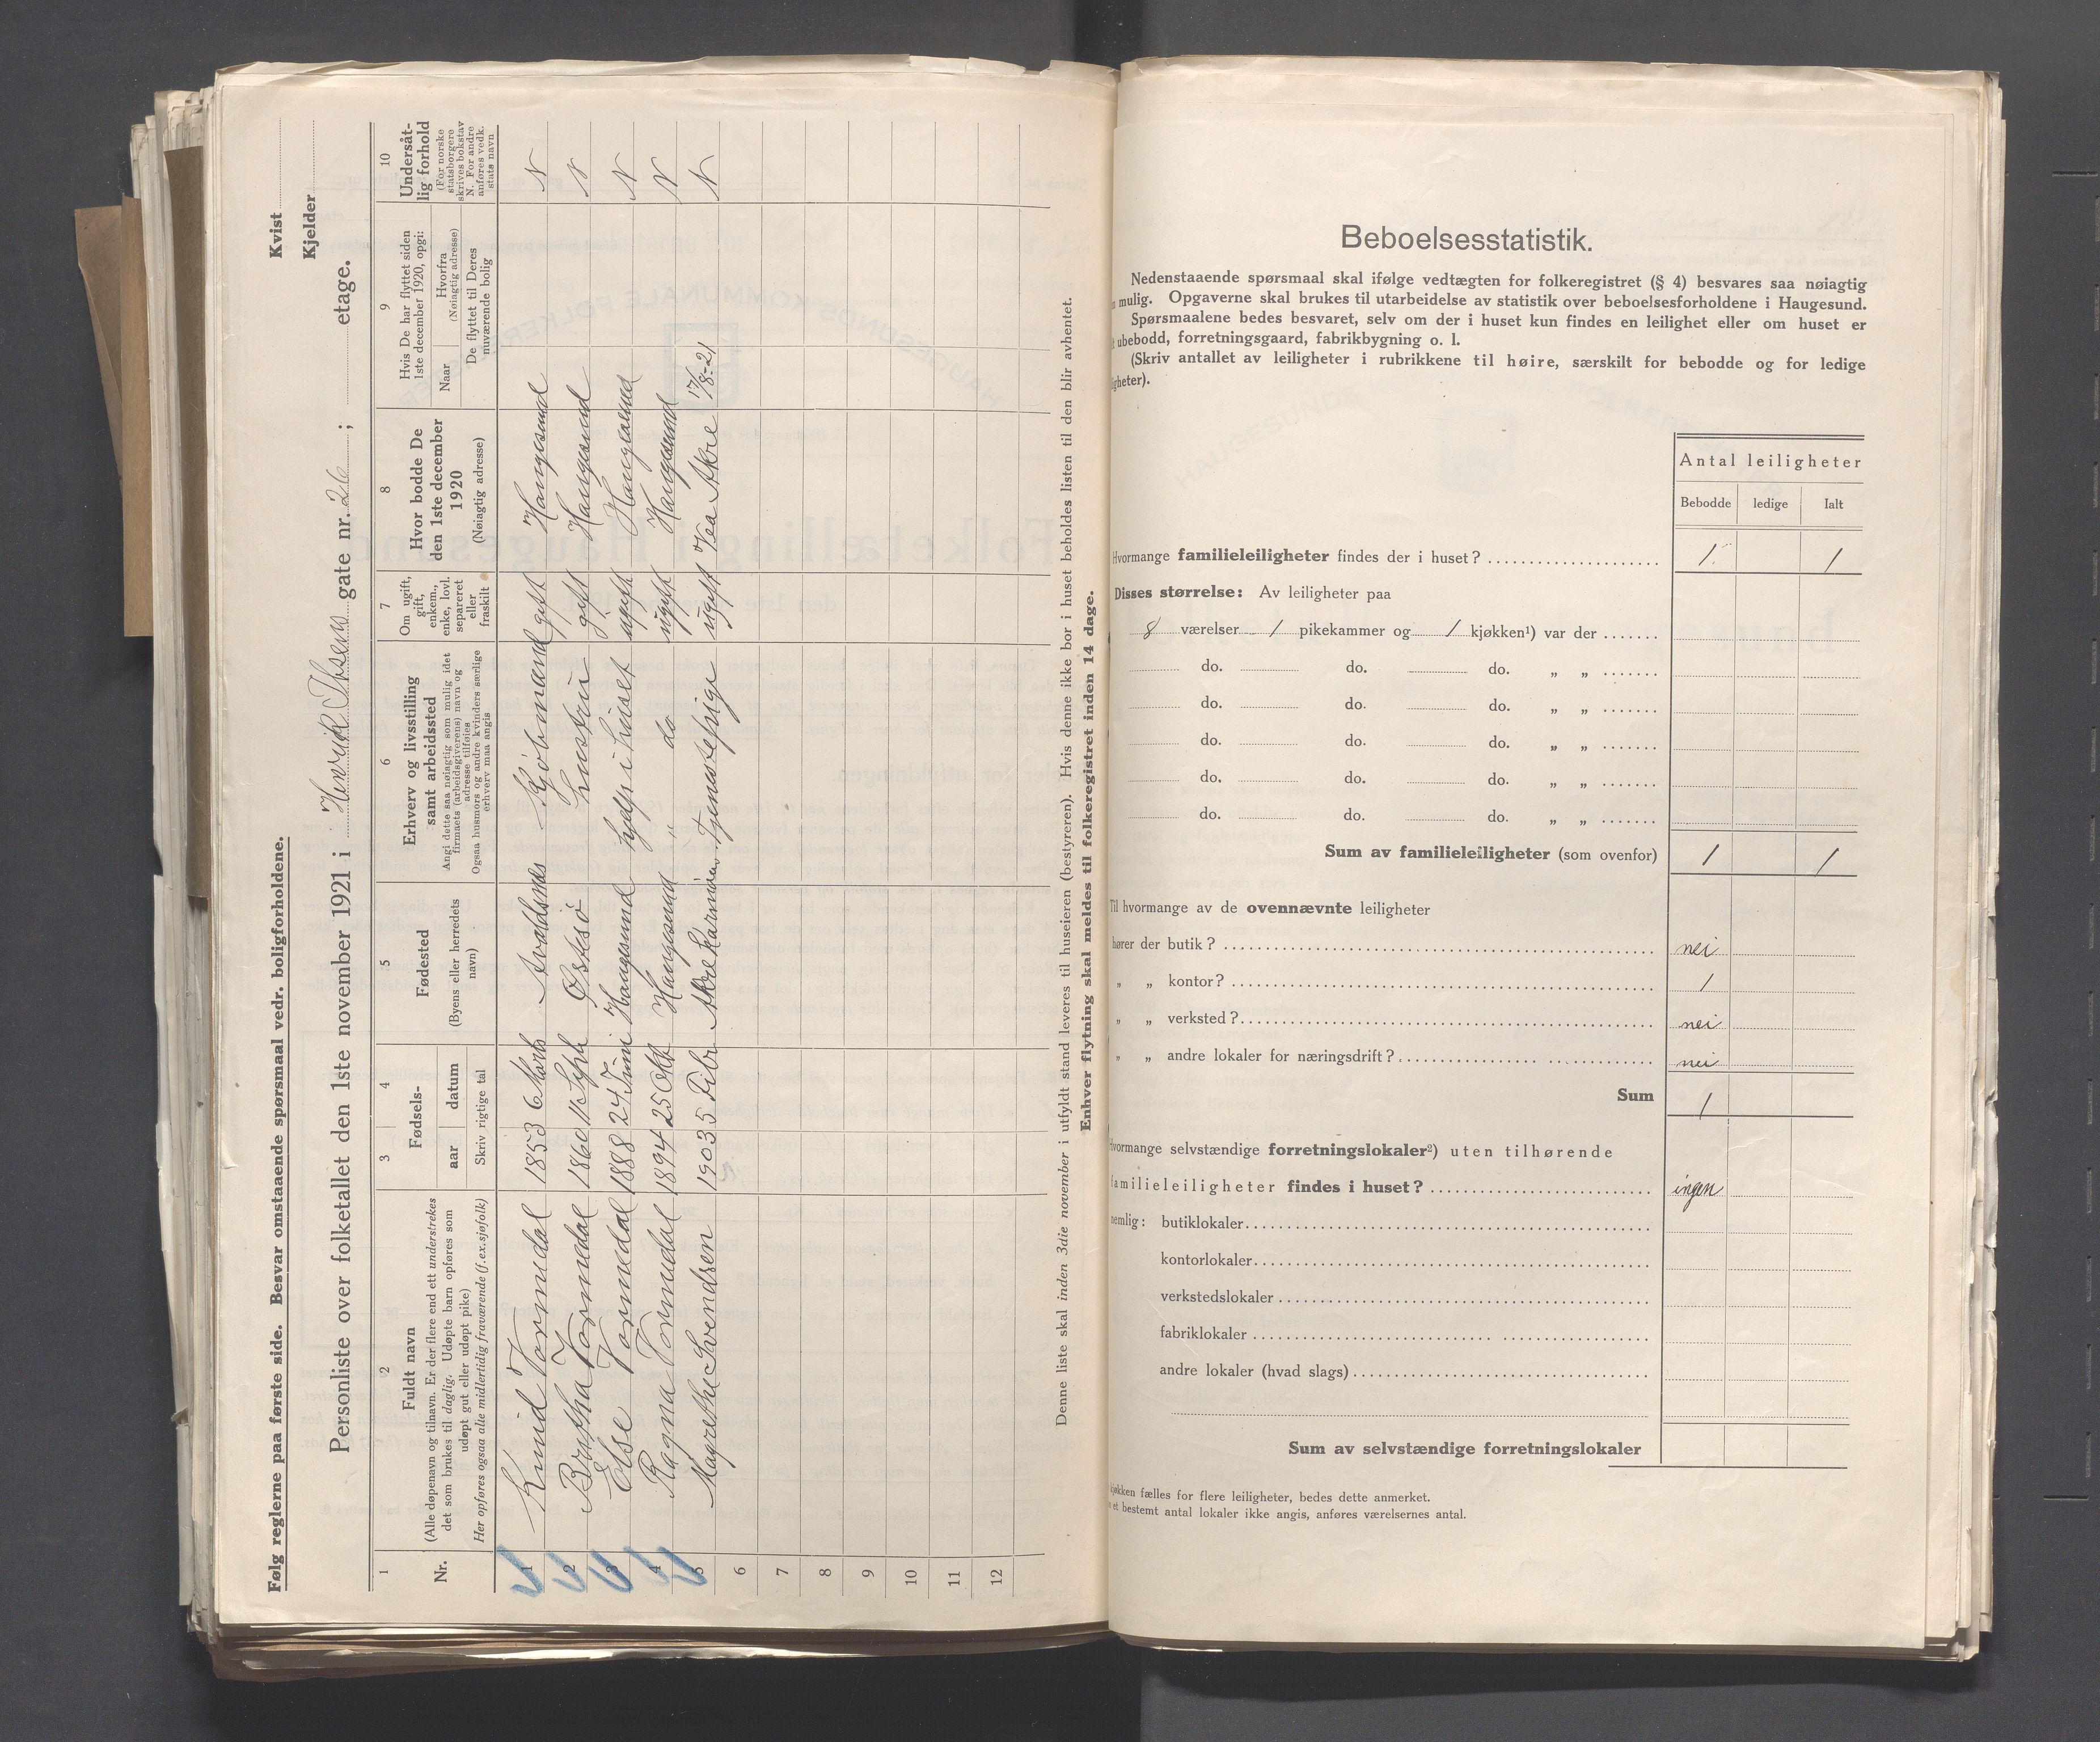 Følg reglerne paa første side. Besvar omstaaende spørsmaal vedr. boligforholdene.
Kvist
Kjelder
Personliste over folketallet den 1ste november 1921 i Henrik Ibsens gate nr. 26 ; etage.
1 2 3 4 5 6 7 8 9 10
Nr.
Fuldt navn
(Alle døpenavn og tilnavn. Er der flere end ett understrekes
det som brukes til daglig. Udøpte barn opføres som
udøpt gut eller udøpt pike)
Her opføres ogsaa alle midlertidig fraværende (f.ex. sjøfolk)
Fødsels-
aar datum
Skriv rigtige tal
Fødested
(Byens eller herredets
navn)
Erhverv og livsstilling
samt arbeidssted
Angi dette saa nøiagtig som mulig idet
firmaets (arbeidsgiverens) navn og
adresse tilføies
Ogsaa husmors og andre kvinders særlige
erhverv maa angis
Om ugift,
gift,
enkem.,
enke, lovl.
separeret
eller
fraskilt
Hvor bodde De
den 1ste december
1920
(Nøiagtig adresse)
Hvis De har flyttet siden
1ste december 1920, opgi:
Naar
Hvorfra
(Nøiagtig adresse)
De flyttet til Deres
nuværende bolig
Undersåt-
lig forhold
(For norske
statsborgere
skrives bokstav
N. For andre
anføres vedk.
stats navn
1 Knud Tormedal 1853 6 Marts Avaldsnes Kjøbmand gift Haugesund N
2 Britha Tormedal 1860 11 Septb Østesø hustru gift Haugesund N
3 Else Tormedal 1888 24 Juni Haugesund hjelp i huset ugift Haugesund N
4 Ragna Tormedal 1894 25 Okt Haugesund " do ugift Haugesund N
5 Magrethe Svendsen 1903 5 Febr Akre Karmøen Tjenestepige ugift Vea Akre 17/8-21 N
6
7
8
9
10
11
12
Denne liste skal inden 3die november i utfyldt stand leveres til huseieren (bestyreren). Hvis denne ikke bor i huset beholdes listen til den blir avhentet.
Enhver flytning skal meldes til folkeregistret inden 14 dage.
Beboelsesstatistik.
Nedenstaaende spørsmaal skal ifølge vedtægten for folkeregistret (§ 4) besvares saa nøiagtig
mulig. Opgaverne skal brukes til utarbeidelse av statistik over beboelsesforholdene i Haugesund.
Spørsmaalene bedes besvaret, selv om der i huset kun findes en leilighet eller om huset er
ubebodd, forretningsgaard, fabrikbygning o. l.
(Skriv antallet av leiligheter i rubrikkene til høire, særskilt for bebodde og for ledige
igheter).
Antal leiligheter
Bebodde ledige Ialt
Hvormange familieleiligheter findes der i huset? 1 1
Disses størrelse: Av leiligheter paa
8 værelser 1 pikekammer og 1 kjøkken¹) var der
do. do. do. „ „
do. do. do. „ „
do. do. do. „ „
do. do. do. „ „
do. do. do. „ „
Sum av familieleiligheter (som ovenfor) 1 1
Til hvormange av de ovennævnte leiligheter
hører der butik? nei
„ „ kontor? 1
„ „ verksted? nei
„ „ andre lokaler for næringsdrift? nei
Sum 1
Hvormange selvstændige forretningslokaler²) uten tilhørende
familieleiligheter findes i huset? ingen
nemlig: butiklokaler
kontorlokaler
verkstedslokaler
fabriklokaler
andre lokaler (hvad slags)
Sum av selvstændige forretningslokaler
kjøkken fælles for flere leiligheter, bedes dette anmerket.
et bestemt antal lokaler ikke angis, anføres værelsernes antal.